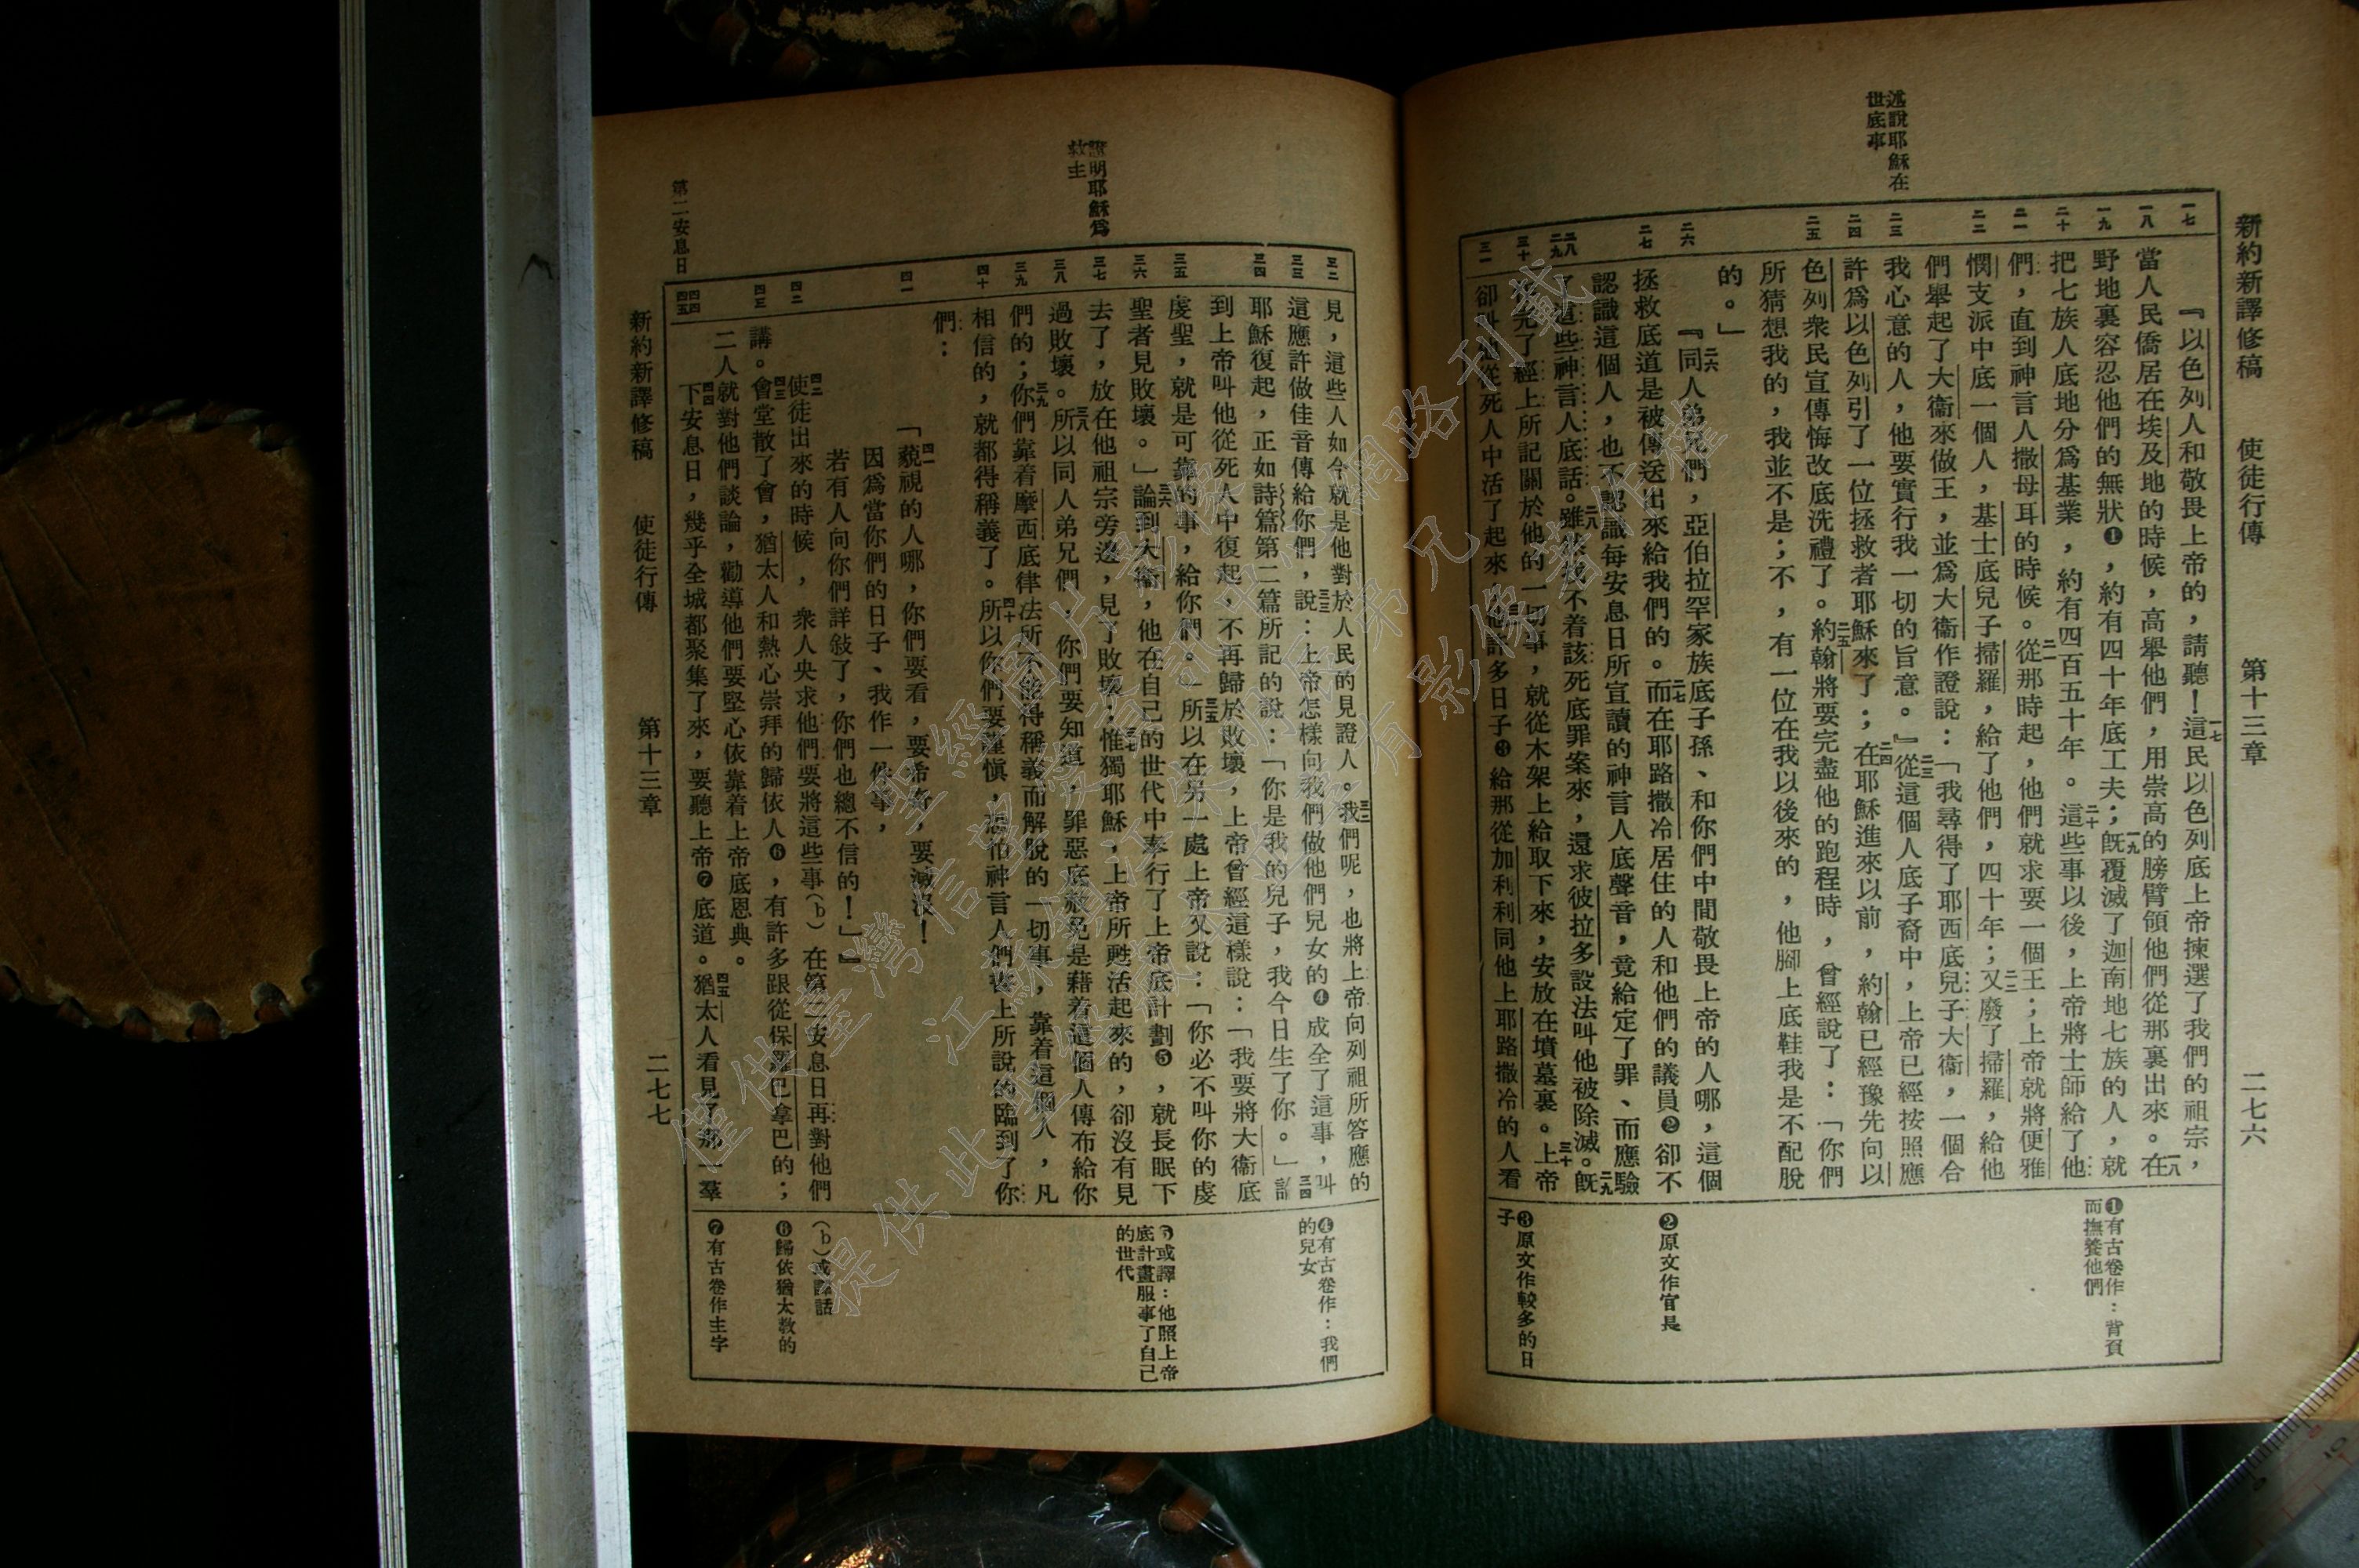 新約新譯修稿　使徒行傳　第十三章　二七六
述說耶穌在
世底事
一七
一八
一九
二十
二一
二二
二三
二四
二五
二六
二七
二八
二九
三十
三一
『以色列人和敬畏上帝的，請聽！一七這民以色列底上帝揀選了我們的祖宗，
當人民僑居在埃及地的時候，高舉他們，用崇高的膀臂領他們從那裏出來。一八在
野地裏容忍他們的無狀❶，約有四十年底工夫；一九旣覆滅了迦南地七族的人，就
把七族人底地分爲基業，約有四百五十年。二十這些事以後，上帝將士師給了他
們，直到神言人撒母耳的時候。二一從那時起，他們就求要一個王；上帝就將便雅
憫支派中底一個人，基士底兒子掃羅，給了他們，四十年；二二又廢了掃羅，給他
們舉起了大衞來做王，並爲大衞作證說：「我尋得了耶西底兒子大衞，一個合
我心意的人，他要實行我一切的旨意。』二三從這個人底子裔中，上帝已經按照應
許爲以色列引了一位拯救者耶穌來了；二四在耶穌進來以前，約翰已經豫先向以
色列衆民宣傳悔改底洗禮了。二五約翰將要完盡他的跑程時，曾經說了：「你們
所猜想我的，我並不是；不，有一位在我以後來的，他腳上底鞋我是不配脫
的。」
『二六同人弟兄們，亞伯拉罕家族底子孫、和你們中間敬畏上帝的人哪，這個
拯救底道是被傳送出來給我們的。二七而在耶路撒冷居住的人和他們的議員❷卻不
認識這個人，也不認識每安息日所宣讀的神言人底聲音，竟給定了罪、而應驗
了這些神言人底話。二八雖然找不着該死底罪案來，還求彼拉多設法叫他被除滅。二九旣
完了經上所記關於他的一切事，就從木架上給取下來，安放在墳墓裏。三十上帝
卻叫他從死人中活了起來；三一他許多日子❸給那從加利利同他上耶路撒冷的人看
❶有古卷作：背負
而撫養他們
❷原文作官長
❸原文作較多的日
子
證明耶穌爲
救主
第二安息日
三二
三三
三四
三五
三六
三七
三八
三九
四十
四一
四二
四三
四四
四五
見，這些人如今就是他對於人民的見證人。三二我們呢，也將上帝向列祖所答應的
這應許做佳音傳給你們，三三說：上帝怎樣向我們做他們兒女的❹成全了這事，叫
耶穌復起，正如詩篇第二篇所記的說：「你是我的兒子，我今日生了你。」三四論
到上帝叫他從死人中復起，不再歸於敗壞，上帝曾經這樣說：「我要將大衞底
虔聖，就是可靠的事，給你們。」三五所以在另一處上帝又說：「你必不叫你的虔
聖者見敗壞。」三六論到大衞，他在自己的世代中奉行了上帝底計劃❺，就長眠下
去了，放在他祖宗旁邊，見了敗壞；三七惟獨耶穌，上帝所甦活起來的，卻沒有見
過敗壞。三八所以同人弟兄們，你們要知道，罪惡底赦免是藉着這個人傳布給你
們的；三九你們靠着摩西底律法所不能得稱義而解脫的一切事，靠着這個人，凡
相信的，就都得稱義了。四十所以你們要謹愼，恐怕神言人們書上所說的臨到了你
們：
「四一藐視的人哪，你們要看，要希奇，要滅沒！
因爲當你們的日子、我作一件事，
若有人向你們詳敍了，你們也總不信的！」』
四二使徒出來的時候，衆人央求他們要將這些事(b)在第二安息日再對他們
講。四三會堂散了會，猶太人和熱心崇拜的歸依人❻，有許多跟從保羅巴拿巴的；
二人就對他們談論，勸導他們要堅心依靠着上帝底恩典。
四四下安息日，幾乎全城都聚集了來，要聽上帝❼底道。四五猶太人看見了那一羣
❹有古卷作：我們
的兒女
❺或譯：他照上帝
底計畫服事了自己
的世代
(b)或譯話
❻歸依猶太教的
❼有古卷作主字
新約新譯修稿　使徒行傳　第十三章　二七七
僅供臺灣信望愛資訊中心網路刊載